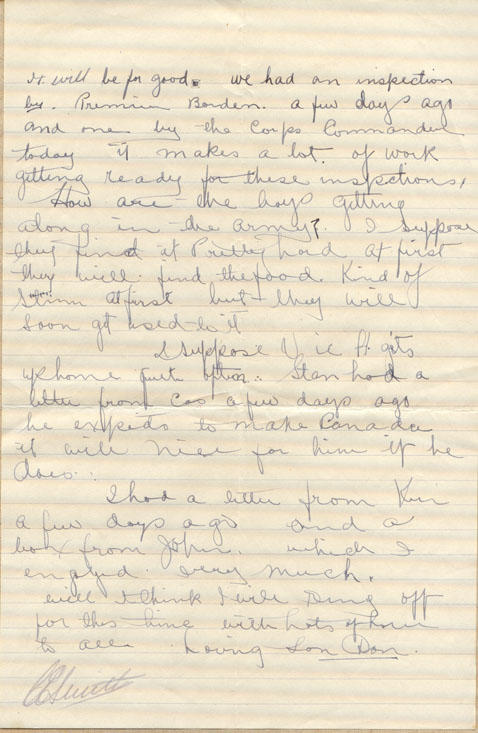 it will be for good. we had an inspection
by. Premier Borden. a few days ago
and one by the Corps Commander
today it makes a lot. of work
getting ready for these inspections,
How are the boys getting
along in the army? I suppose
they find it Pretty hard at first
they will find the food. Kind of
at first but they will
soon get used to it
I suppose Vic H gets
up home quite often.. Stan had a
letter from Cas a few days ago
he expects to make Canada
it will nice for him if he
does.
I had a letter from
a few days ago and a
box from John. which I
enjoyed. very much.
will I think I will Ring off
for this time with Lots of Love
to all. Loving Son Don.